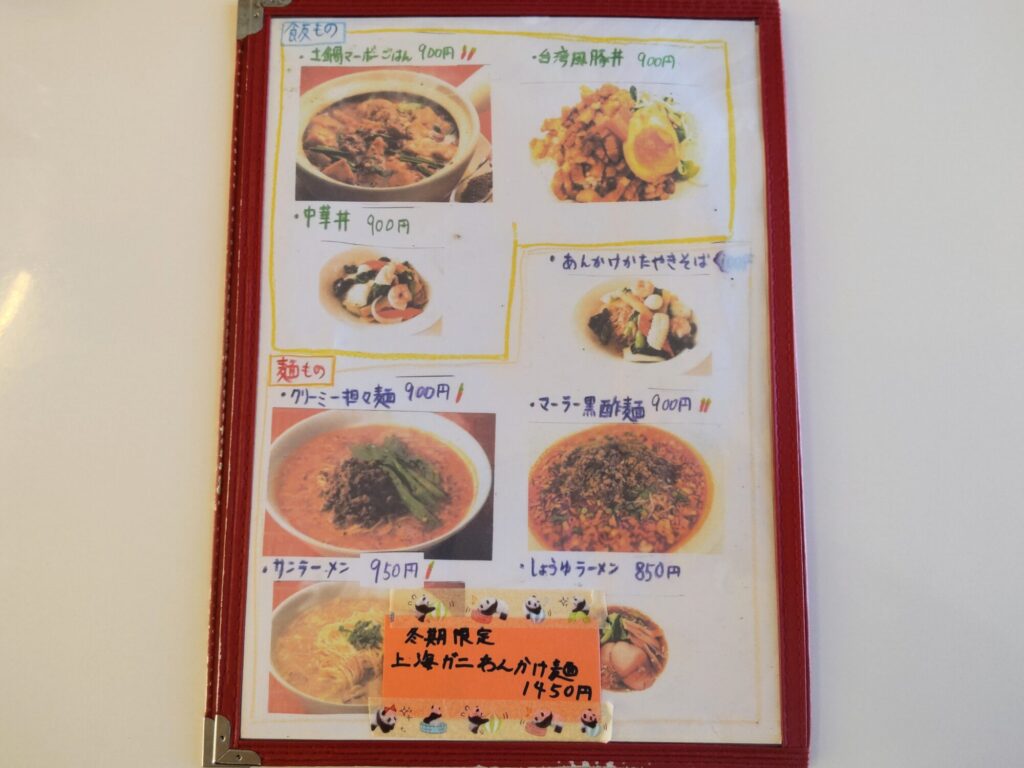 飯もの
・土鍋マーボーごはん 900円
・台湾風豚丼 900円
・中華丼 900円
・あんかけかたやきそば
麺もの
・クリーミー担々麺 900円
・マーラー黒酢麺 900円
・サンラーメン 950円
・しょうゆラーメン 850円
冬期限定
上海ガニあんかけ麺
1450円